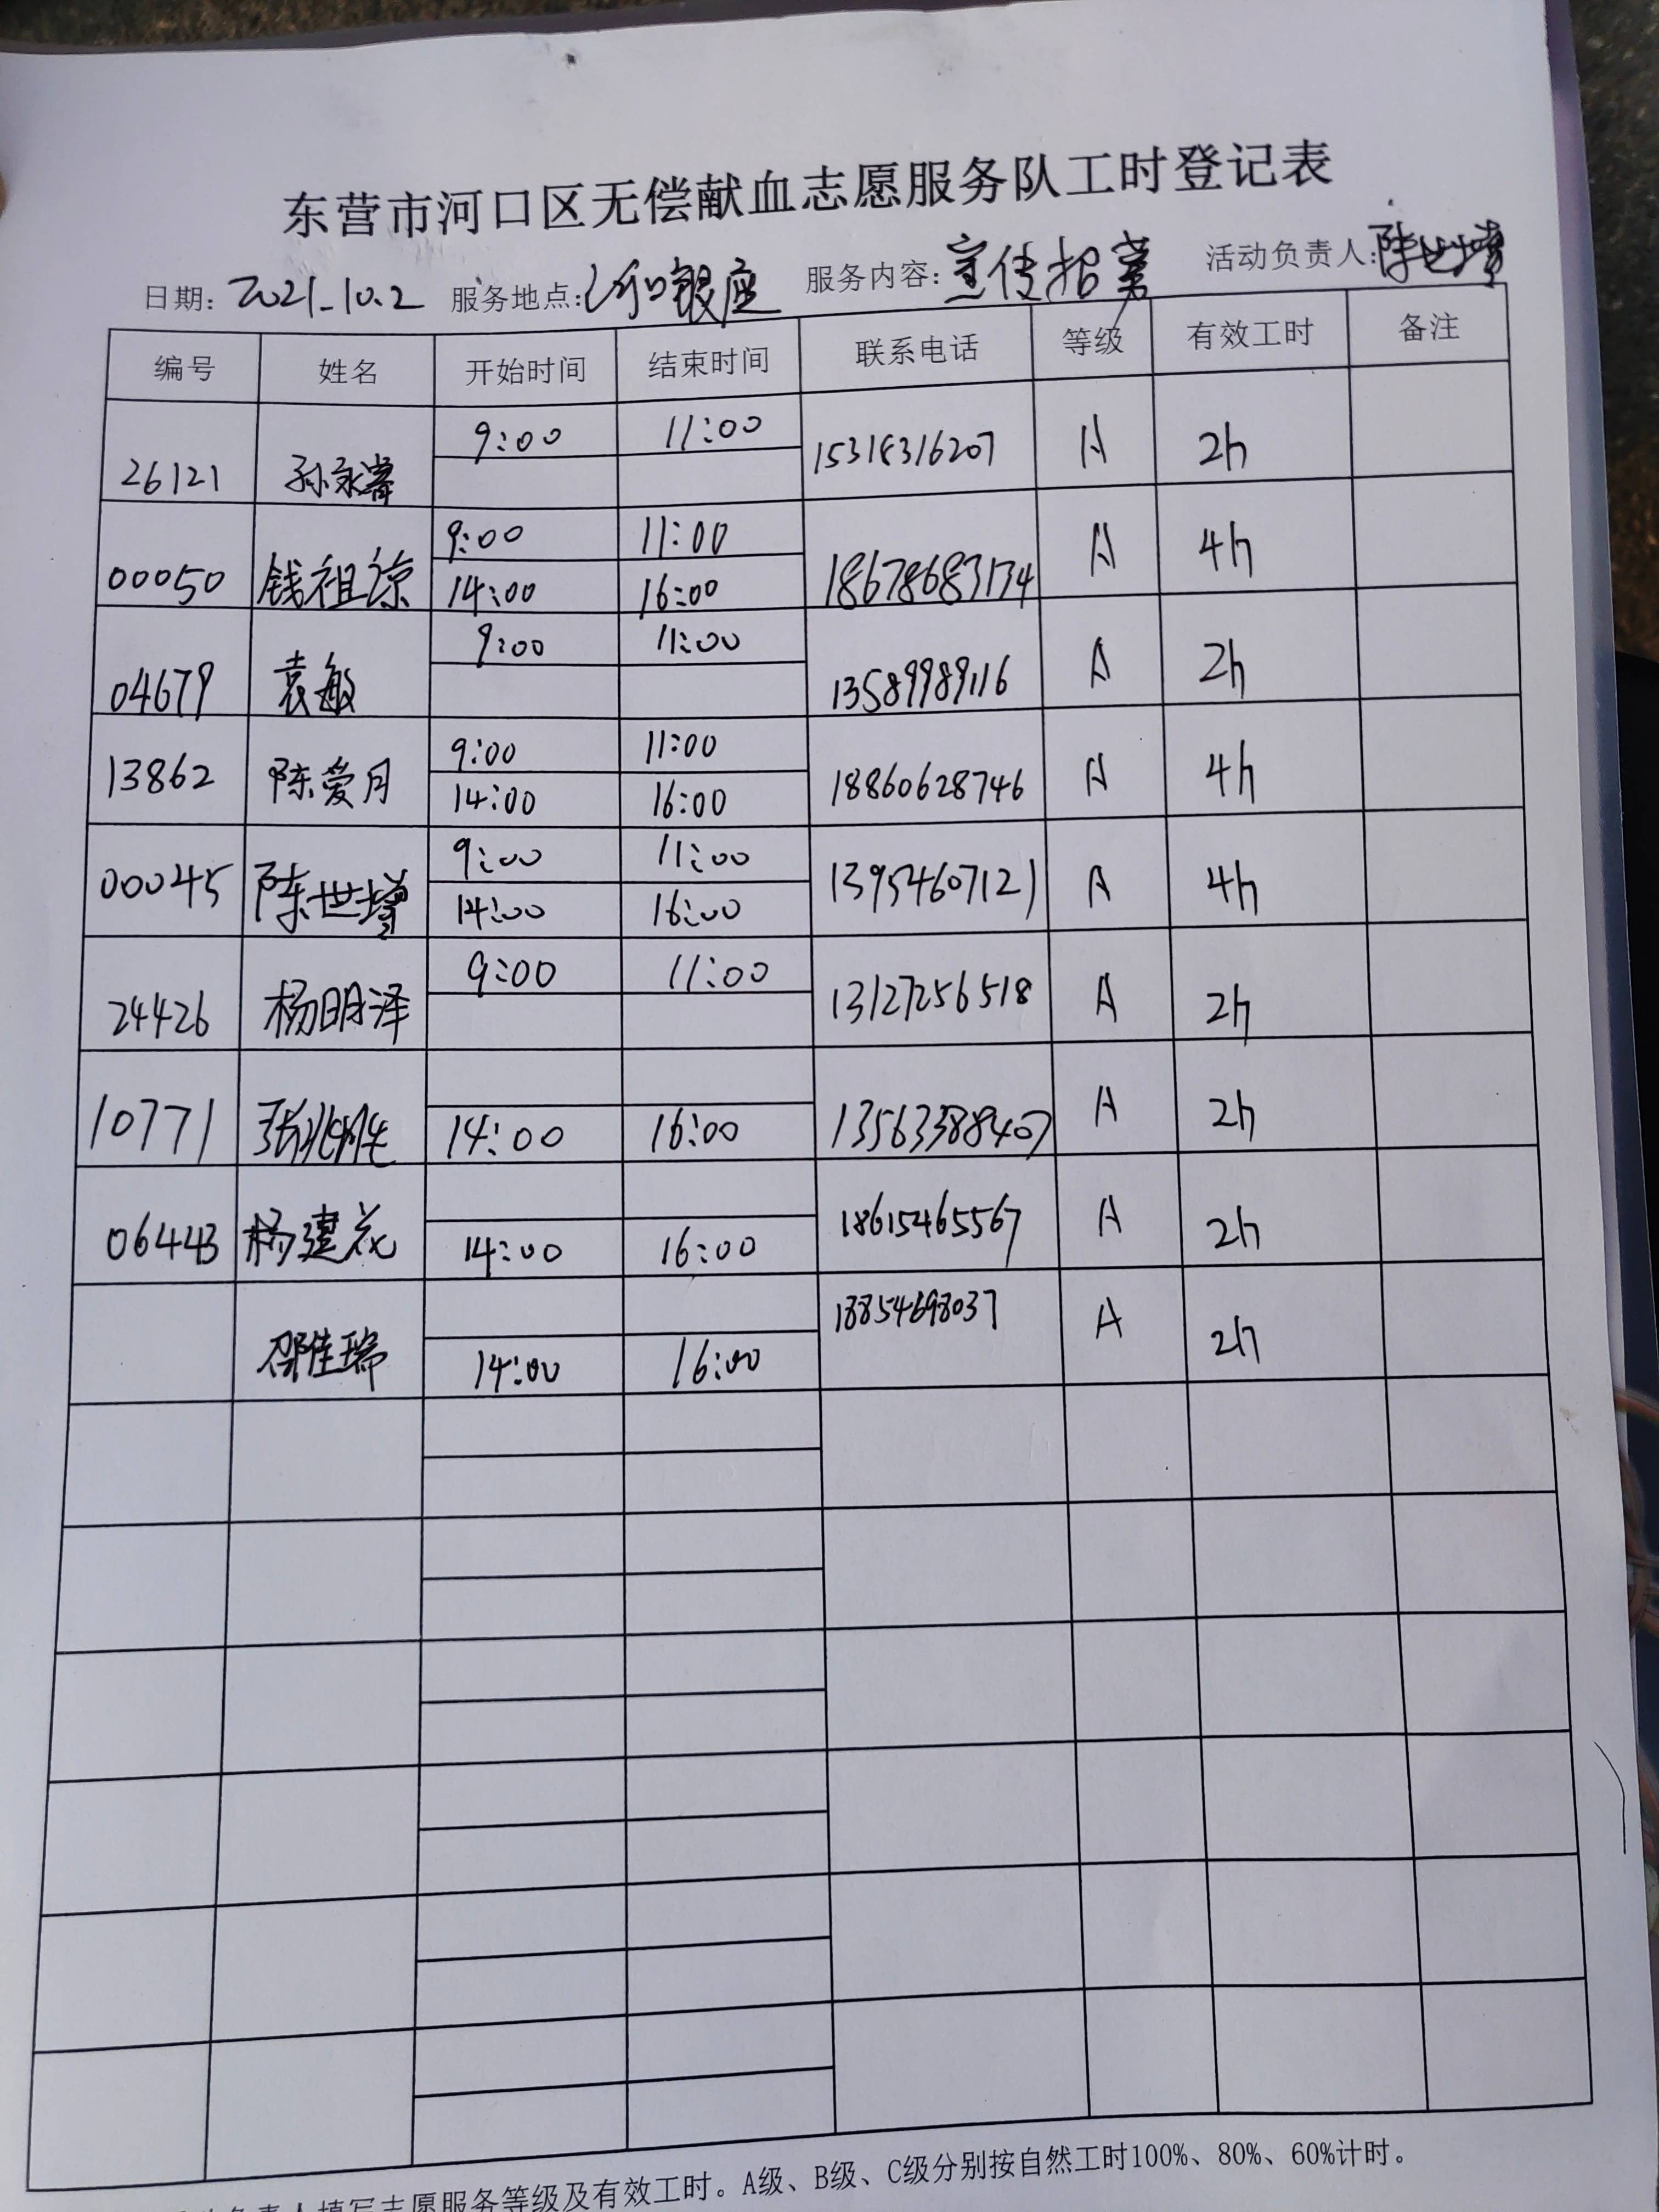 东营市河口区无偿献血志愿服务队工时登记表
日期: 2021.10.2 服务地点: 河口银座 服务内容: 宣传招募 活动负责人: 陈世增
编号 姓名 开始时间 结束时间 联系电话 等级 有效工时 备注
9:00 11:00
26121 孙永 15318316207 A 2h
9:00 11:00
00050 钱祖凉 14:00 16:00 18678683134 A 4h
9:00 11:00
04679 袁敏 13589989116 A 2h
9:00 11:00
13862 陈爱月 14:00 16:00 18860628746 A 4h
9:00 11:00
00045 陈世增 14:00 16:00 13954607121 A 4h
9:00 11:00
24426 杨明泽 13127256518 A 2h
10771 张 14:00 16:00 13563388407 A 2h
06443 杨建花 14:00 16:00 18615465567 A 2h
邵佳瑞 14:00 16:00 18854698037 A 2h
负责人填写志愿服务等级及有效工时。A级、B级、C级分别按自然工时100%、80%、60%计时。